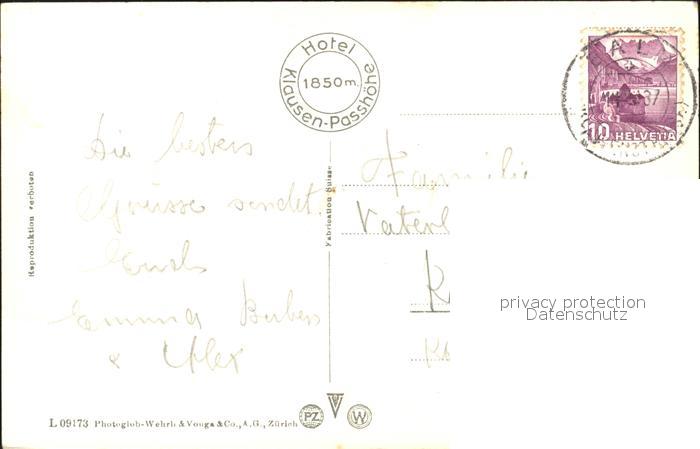 Hotel
Klausen-Passhöhe
1850 m.
10 HELVETIA
Die besten
Grüsse sendet
Euch
Emma
& Alex
Familie
Reproduktion verboten
Fabrication Suisse
privacy protection
Datenschutz
L 09173 Photoglob-Wehrli & Vouga & Co., A.G., Zürich
PZ
W